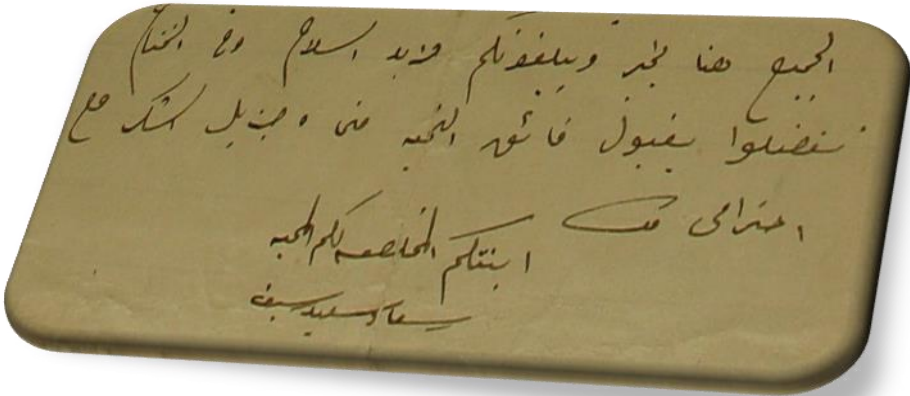 الجميع هنا بخير ويبلغونكم مزيد السلام وفي الختام
تفضلوا بقبول فائق التحيه مني وجزيل الشكر مع
احترامي
ابنتكم المخلصه لكم المحبه
سعاد سعيد سيف